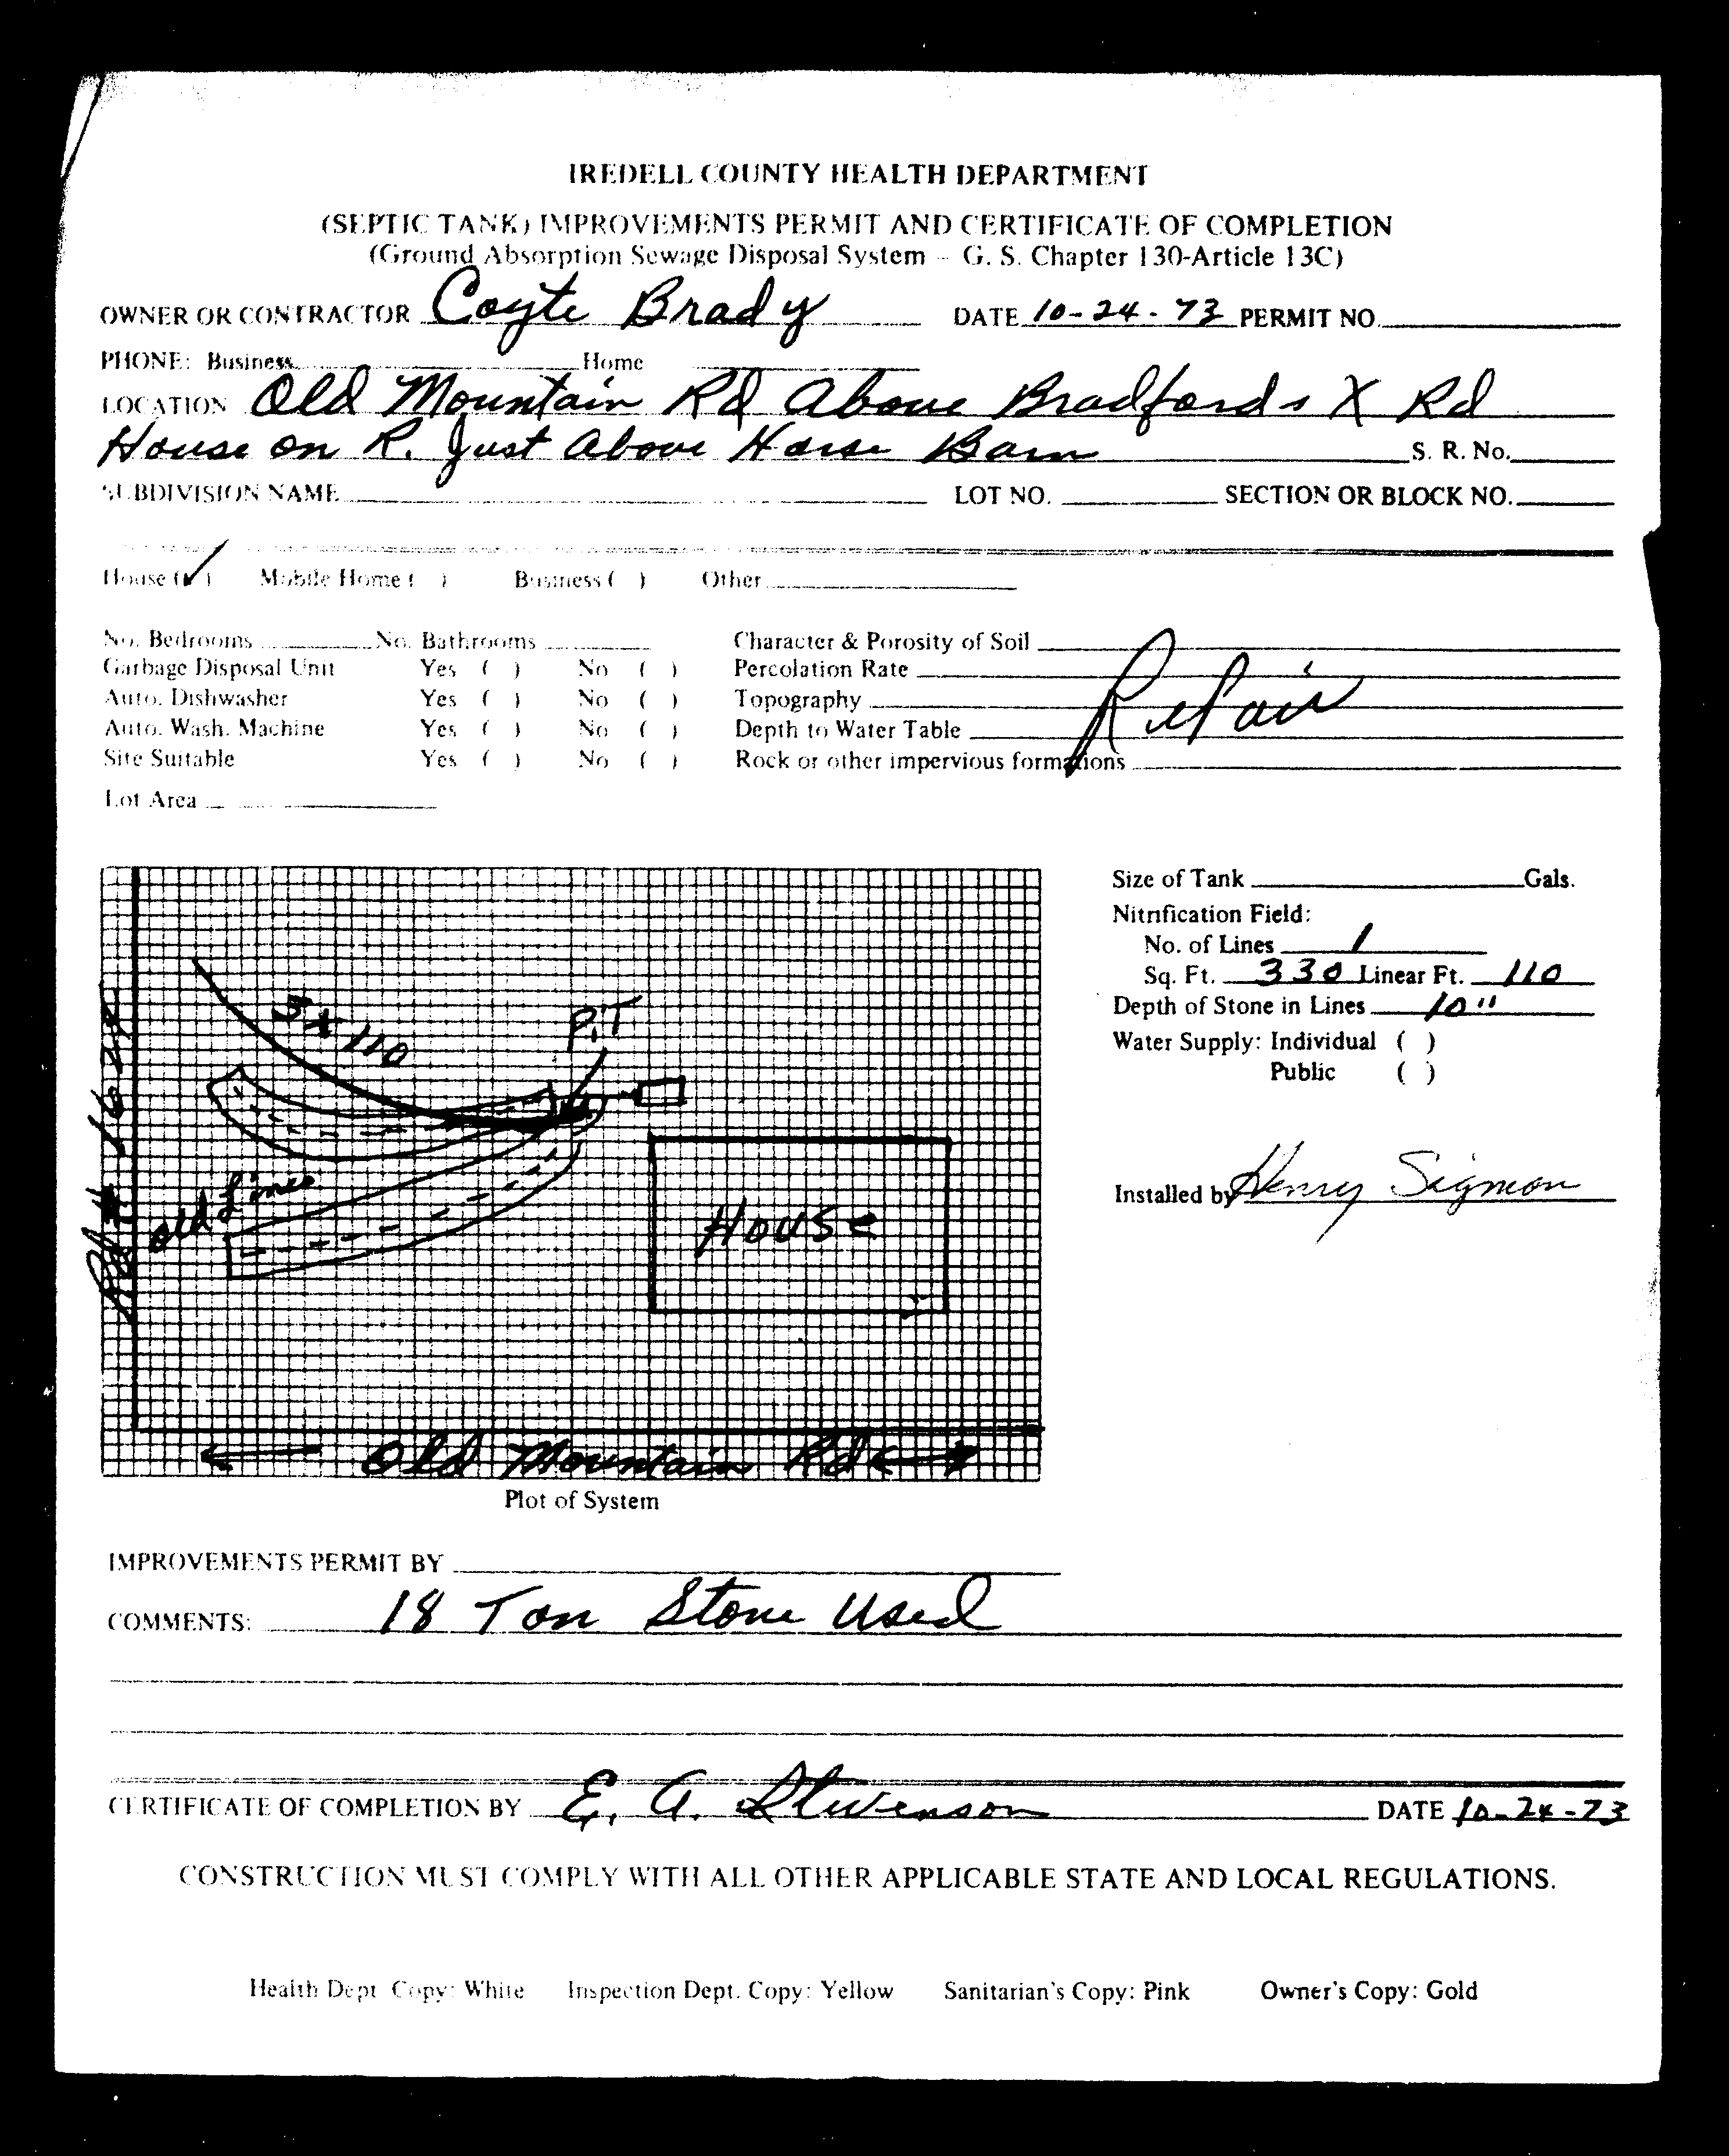 IREDELL COUNTY HEALTH DEPARTMENT
(SEPTIC TANK) IMPROVEMENTS PERMIT AND CERTIFICATE OF COMPLETION
(Ground Absorption Sewage Disposal System - G. S. Chapter 130-Article 13C)
OWNER OR CONTRACTOR Coyte Brady DATE 10-24-73 PERMIT NO.
PHONE: Business Home
LOCATION Old Mountain Rd Above Bradfords X Rd
House on R. Just Above Horse Barn S. R. No.
SUBDIVISION NAME LOT NO. SECTION OR BLOCK NO.
House (✓) Mobile Home ( ) Business ( ) Other
No. Bedrooms No. Bathrooms Character & Porosity of Soil
Garbage Disposal Unit Yes ( ) No ( ) Percolation Rate
Auto. Dishwasher Yes ( ) No ( ) Topography Repair
Auto. Wash. Machine Yes ( ) No ( ) Depth to Water Table
Site Suitable Yes ( ) No ( ) Rock or other impervious formations
Lot Area
Size of Tank Gals.
Nitrification Field:
No. of Lines 1
Sq. Ft. 330 Linear Ft. 110
Depth of Stone in Lines 10"
Water Supply: Individual ( )
Public ( )
Installed by Henry Sigmon
3 x 110
PiT
Old Lines
House
Rd #
Old Mountain Rd
Plot of System
IMPROVEMENTS PERMIT BY
COMMENTS: 18 Ton Stone Used
CERTIFICATE OF COMPLETION BY E. A. Stevenson DATE 10-24-73
CONSTRUCTION MUST COMPLY WITH ALL OTHER APPLICABLE STATE AND LOCAL REGULATIONS.
Health Dept. Copy: White Inspection Dept. Copy: Yellow Sanitarian's Copy: Pink Owner's Copy: Gold